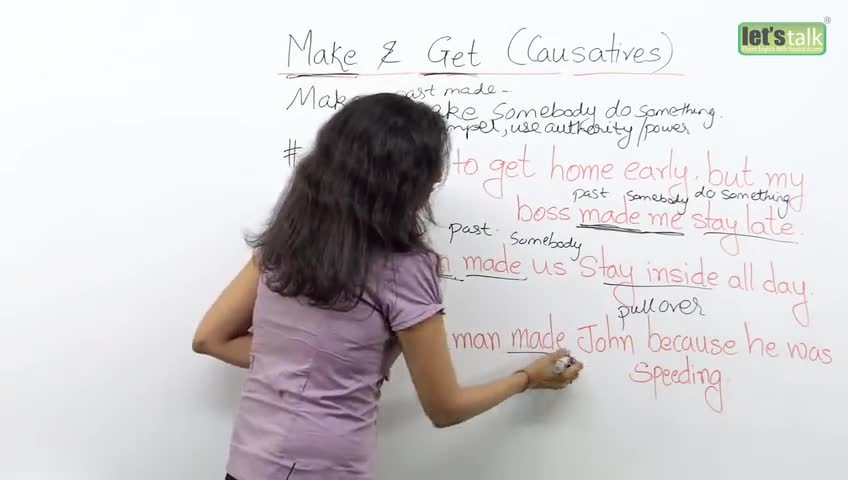 let's talk
®
Make & Get (Causatives)
past made -
somebody do something.
, use authority/power
#
to get home early, but my
past somebody do something
boss made me stay late.
past. somebody
made us stay inside all day.
pull over
man made John because he was
speeding.